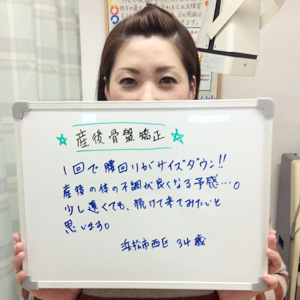 産後骨盤矯正
1回で腰回りがサイズダウン!!
産後の体の不調が良くなる予感…。
少し遠くても、続けて来てみたいと
思います。
浜松市西区 34歳